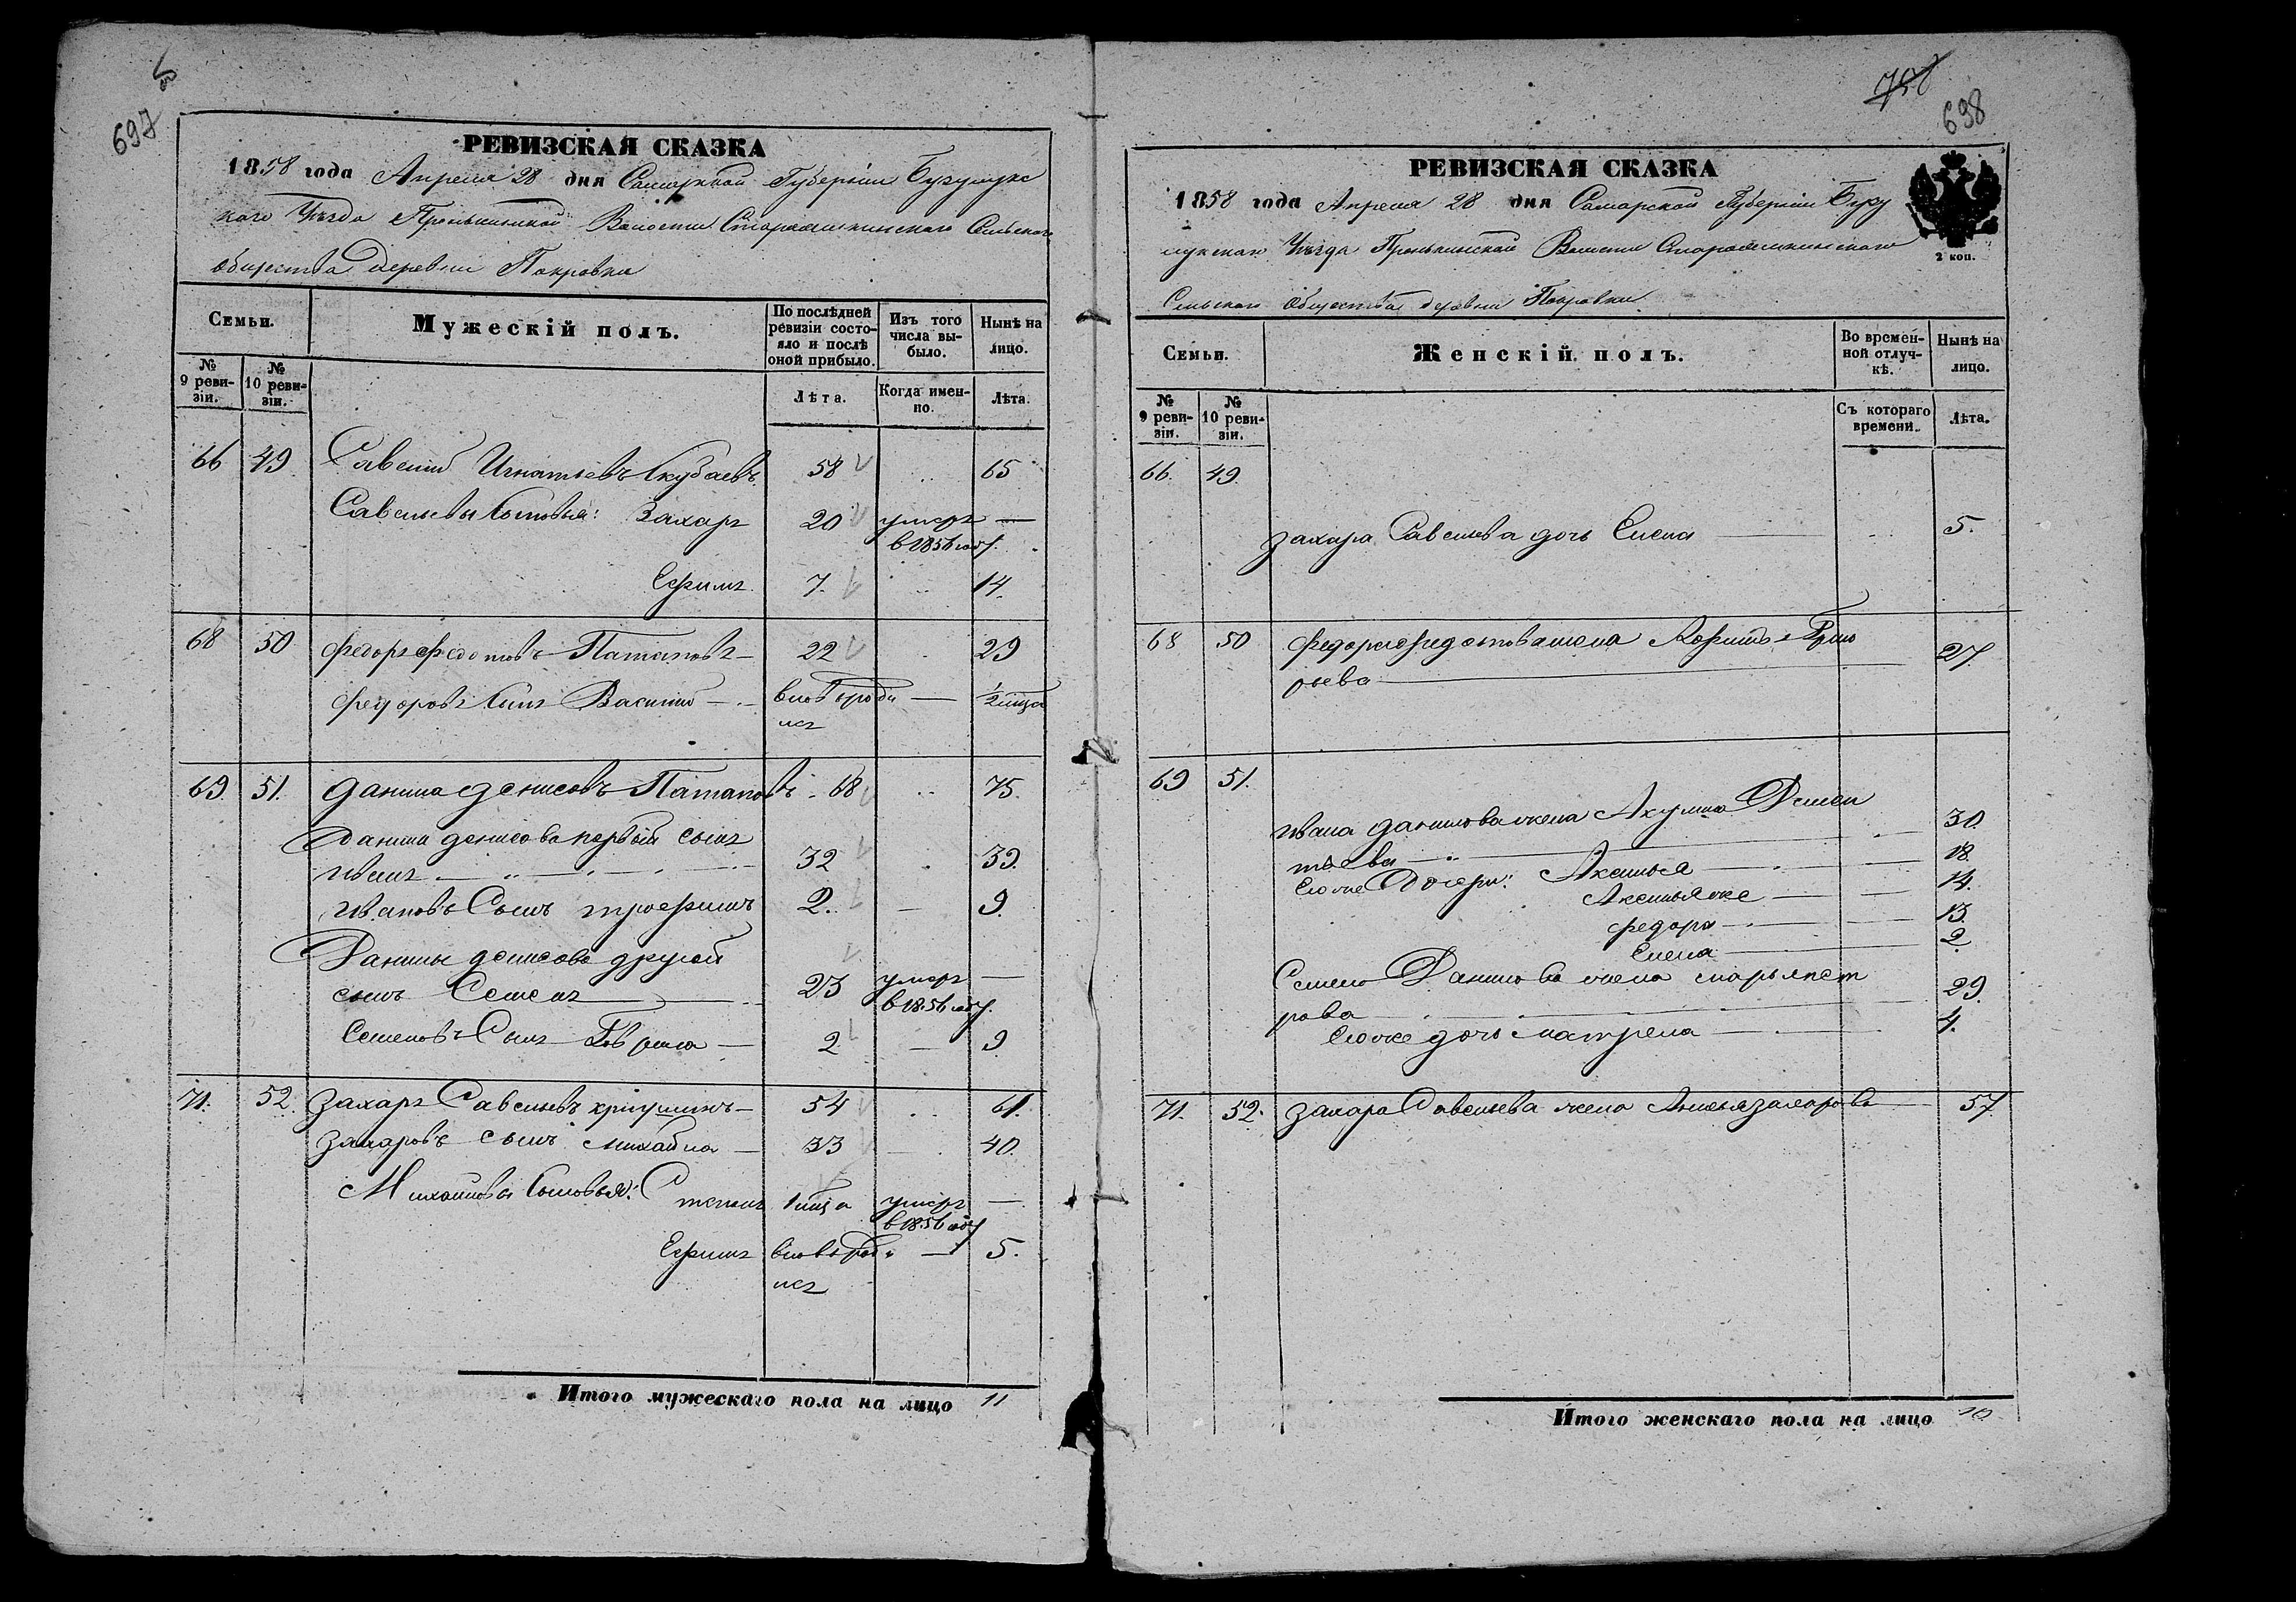 697
РЕВИЗСКАЯ СКАЗКА
1858 года Апреля 28 дня Самарской Губерніи Бузулукс
каго Уѣзда Пронькинской Волости Староякшинскаго Сельскаго
общества деревни Покровки
Семьи.
Мужескій полъ.
По послѣдней ревизіи состояло и послѣ оной прибыло.
Изъ того числа выбыло.
Нынѣ на лицо.
№ 9 ревизіи.
№ 10 ревизіи.
Лѣта.
Когда именно.
Лѣта.
66 49 Савелій Игнатьевъ 58 65
Савельевы Сыновья: Захаръ 20 умеръ —
в 1856 году.
Ефимъ 7. 14.
68 50 Федоръ Федотовъ Патаповъ 22 29
Федоровъ Сынъ Василий вновь роди — 1/2 мца
лсъ
69. 51. Данила Денисовъ Патаповъ 68 75.
Данилы Денисова первый сынъ
Иванъ 32 39.
Ивановъ Сынъ Трофимъ 2. — 9.
Данилы Денисова другой
сынъ Семенъ 23 умеръ —
в 1856 году.
Семеновъ Сынъ Гаврила — 2. — 9.
71. 52. Захаръ Савельевъ 54 61.
Захаровъ сынъ Михайла — 33 — 40.
Михайловы Сыновья: Степанъ 1 мца умеръ —
в 1856 году
Ефимъ вновь роди — 5.
лсъ
Итого мужескаго пола на лицо 11
758
698
РЕВИЗСКАЯ СКАЗКА
1858 года Апреля 28 дня Самарской Губерніи Бузу
лукскаго Уѣзда Пронькинской Волости Староякшинскаго
2 коп.
Сельскаго Общества деревни Покровки
Семьи.
Женскій полъ.
Во временной отлучкѣ.
Нынѣ на лицо.
№ 9 ревизіи.
№ 10 ревизіи.
Съ котораго времени.
Лѣта.
66. 49.
Захара Савельева дочь Елена 5.
68 50 Федора Федотова жена Григо
рьева 27
69 51.
Ивана Данилова жена Акулина Демен
тьева 30.
Его же Дочери: Аксинья 18.
Аксинья же 14.
Федора 13.
Елена 2.
Семена Данилова жена Марья Пет
рова 29.
Его же дочь Матрена 4.
71. 52. Захара Савельева жена Захарова 57
Итого женскаго пола на лицо 10